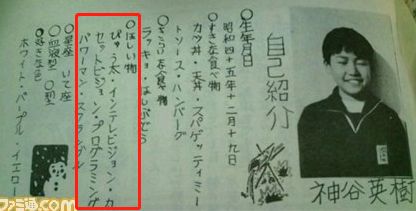 自己紹介
○生年月日
昭和四十五年十二月十九日
○すきな食べ物
カツ丼・天丼・スパゲッティミー
トソース・ハンバーグ
○きらいな食べ物
ラッキョ・ほしぶどう
○ほしい物
ぴゅう太・インテレビジョン・カ
セットビジョン・プログラミング
パワーマン・スクランブル
○星座 いて座
○血液型 O型
○好きな色
ホワイト・パープル・イエロー
神谷英樹
ファミ通.com